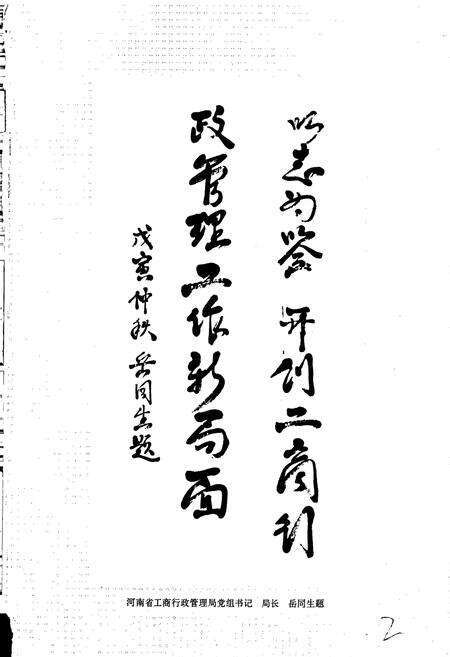 以志为鉴 开创工商行
政管理工作新局面
戊寅仲秋岳同生题
河南省工商行政管理局党组书记 局长 岳同生题
2